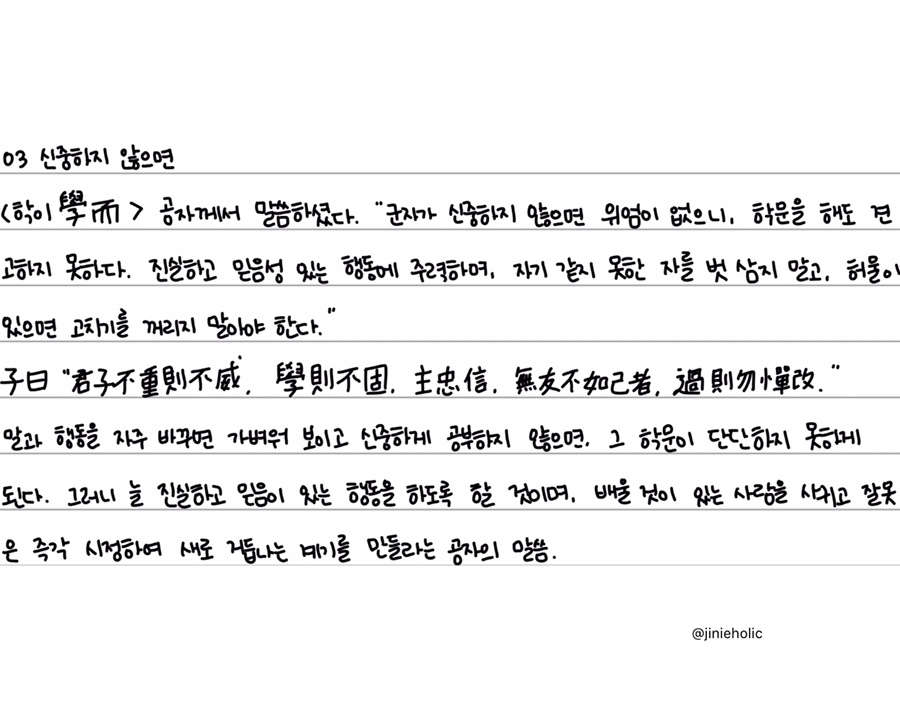 03 신중하지 않으면
<학이 學而> 공자께서 말씀하셨다. "군자가 신중하지 않으면 위엄이 없으니, 학문을 해도 견
고하지 못하다. 진실하고 믿음성 있는 행동에 주력하며, 자기 같지 못한 자를 벗 삼지 말고, 허물이
있으면 고치기를 꺼리지 말아야 한다."
子曰 "君子不重則不威, 學則不固, 主忠信, 無友不如己者, 過則勿憚改."
말과 행동을 자주 바꾸면 가벼워 보이고 신중하게 공부하지 않으면, 그 학문이 단단하지 못하게
된다. 그러니 늘 진실하고 믿음이 있는 행동을 하도록 할 것이며, 배울 것이 있는 사람을 사귀고 잘못
은 즉각 시정하여 새로 거듭나는 계기를 만들라는 공자의 말씀.
@jinieholic